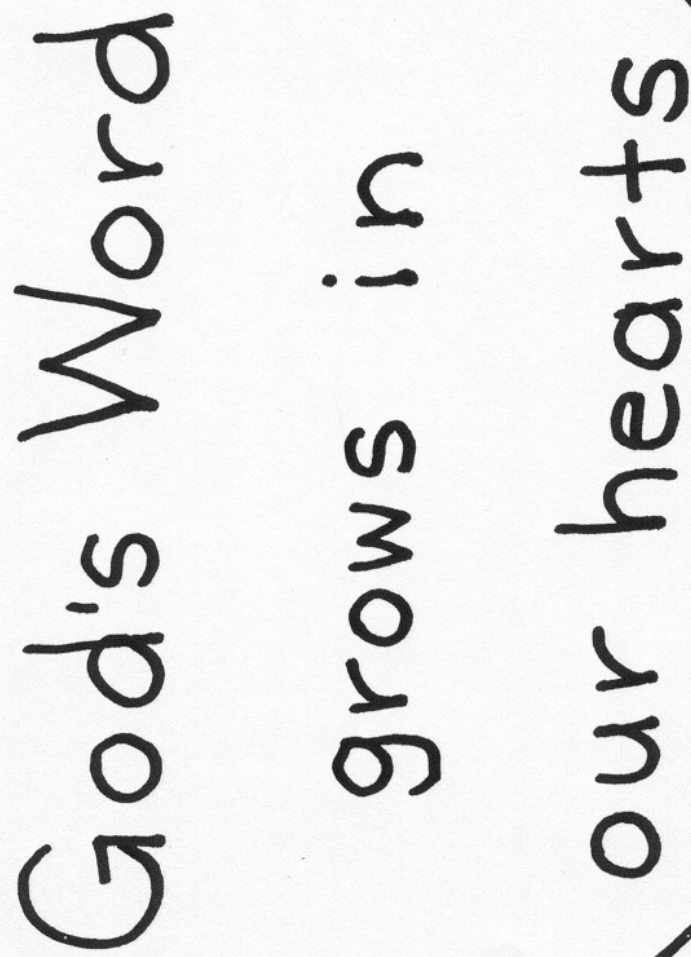 God's Word
grows in
our hearts